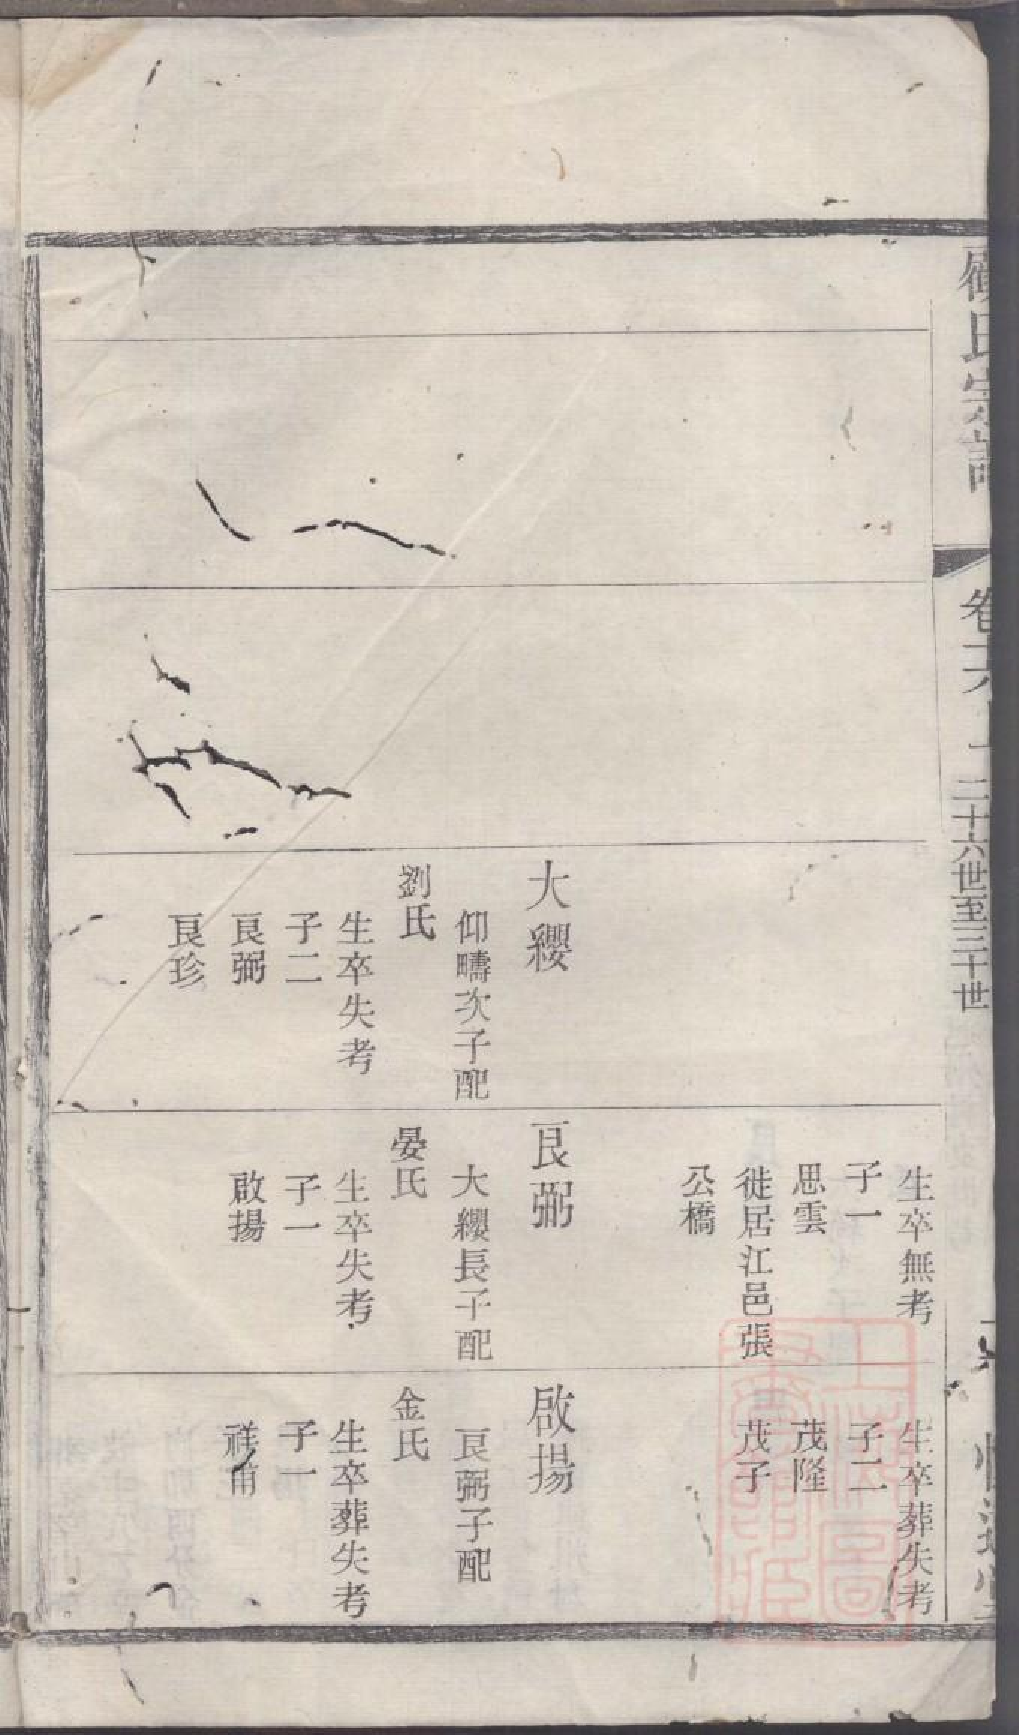 顧氏宗譜
卷六
二十六世至三十世
大纓
仰疇次子配
劉氏
生卒失考
子二
良弼
良珍
生卒無考
子一
思雲
徙居江邑張
公橋
良弼
大纓長子配
晏氏
生卒失考
子一
啟揚
生卒葬失考
子二
茂隆
茂子
啟揚
良弼子配
金氏
生卒葬失考
子一
祥甫